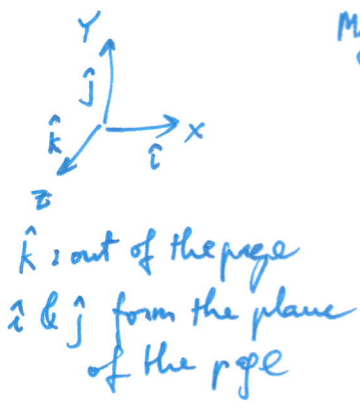 Y
M
ĵ
k̂
X
î
Z
k̂ : out of the page
î & ĵ form the plane
of the pge